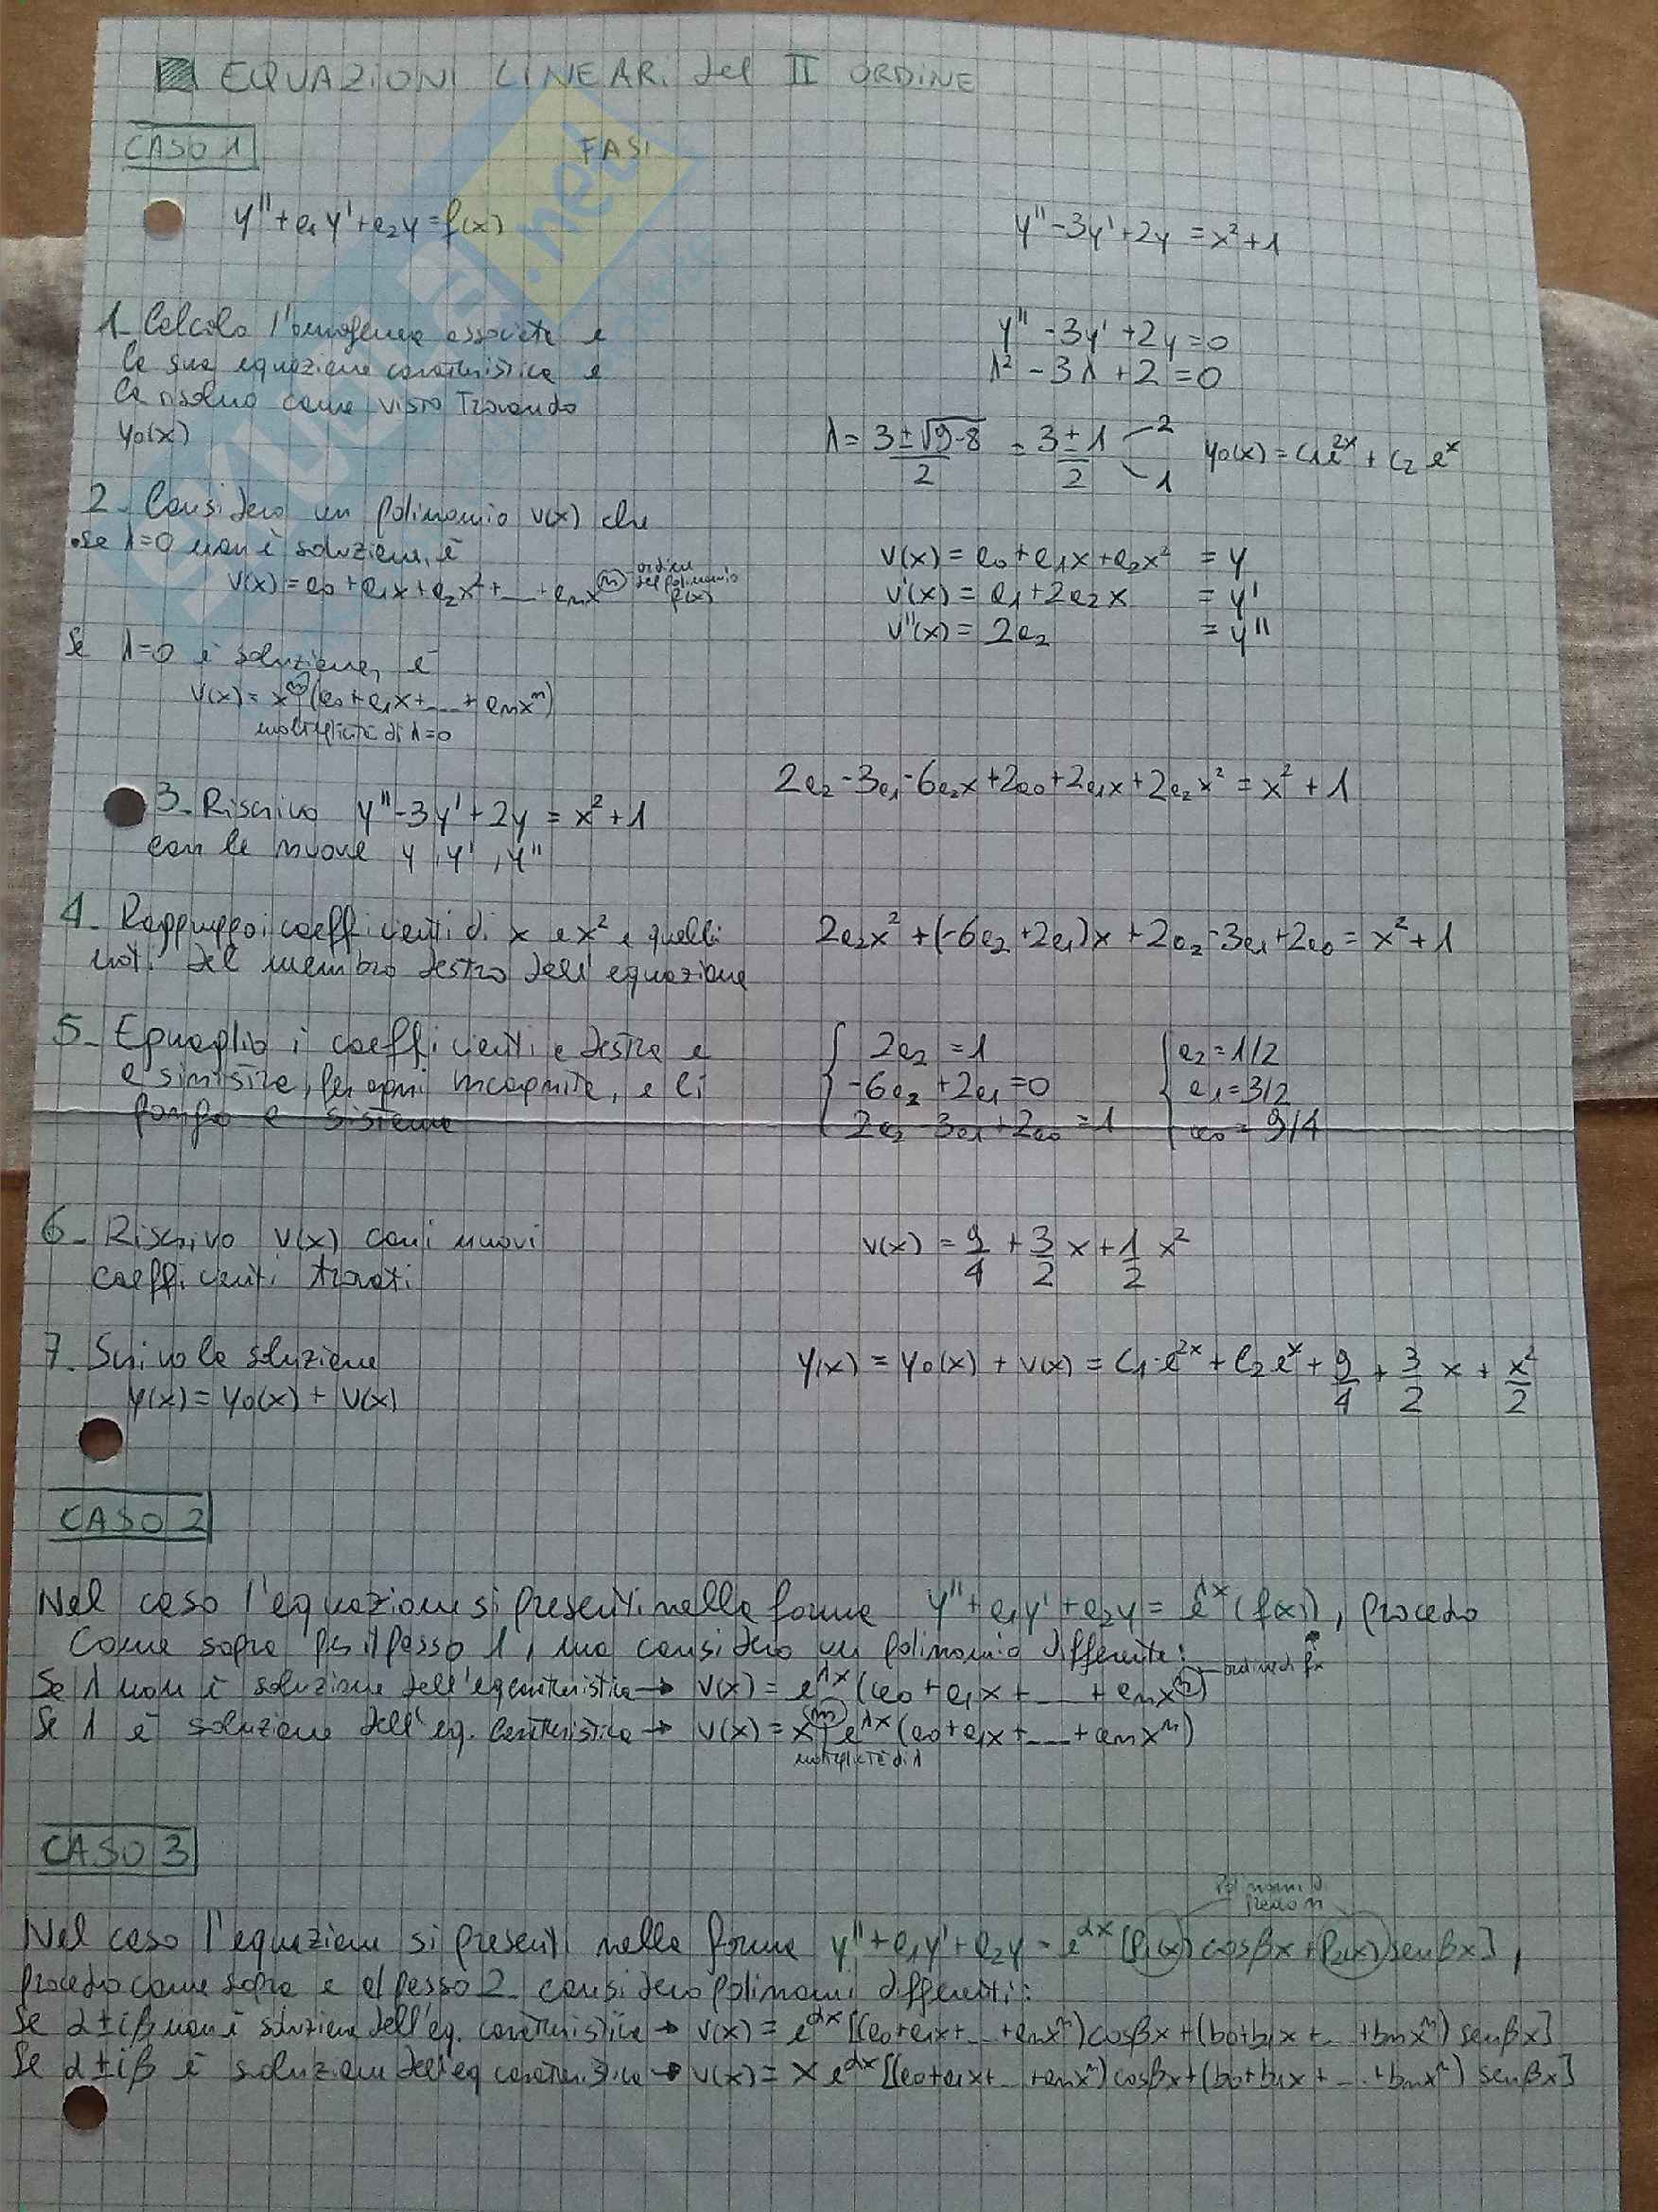 EQUAZIONI LINEARI del II ORDINE
CASO 1
FASI
y''+a₁y'+a₂y=f(x)
y''-3y'+2y=x²+1
1- Calcolo l'omogenea associata e
la sua equazione caratteristica e
la risolvo come visto trovando
y₀(x)
y''-3y'+2y=0
λ²-3λ+2=0
λ=3±√9-8/2 = 3±1/2 2 1 y₀(x)=c₁e²ˣ+c₂eˣ
2- Considero un polinomio v(x) che
•se λ=0 non è soluzione, è
v(x)=a₀+a₁x+a₂x²+...+aₙxⁿ ordine del polinomio f(x)
Se λ=0 è soluzione, è
v(x)=xᵐ(a₀+a₁x+...+aₙxⁿ)
molteplicità di λ=0
v(x)=a₀+a₁x+a₂x² =y
v'(x)=a₁+2a₂x =y'
v''(x)=2a₂ =y''
3- Riscrivo y''-3y'+2y=x²+1
con le nuove y, y', y''
2a₂-3a₁-6a₂x+2a₀+2a₁x+2a₂x²=x²+1
4- Raggruppo i coefficienti di x e x² e quelli
noti del membro destro dell'equazione
2a₂x²+(-6a₂+2a₁)x+2a₂-3a₁+2a₀=x²+1
5- Eguaglio i coefficienti a destra e
a sinistra, per ogni incognita, e li
pongo a sistema
2a₂=1 a₂=1/2
-6a₂+2a₁=0 a₁=3/2
2a₂-3a₁+2a₀=1 a₀=9/4
6- Riscrivo v(x) con i nuovi
coefficienti trovati
v(x)=9/4+3/2x+1/2x²
7- Scrivo la soluzione
y(x)=y₀(x)+v(x)
y(x)=y₀(x)+v(x)=c₁·e²ˣ+c₂eˣ+9/4+3/2x+x²/2
CASO 2
Nel caso l'equazione si presenti nella forma y''+a₁y'+a₂y=eλˣ(f(x)), procedo
come sopra per il passo 1, ma considero un polinomio differente:
Se λ non è soluzione dell'eq caratteristica → v(x)=eλˣ(a₀+a₁x+...+aₙxⁿ) ordine di fx
Se λ è soluzione dell'eq. caratteristica → v(x)=xᵐeλˣ(a₀+a₁x+...+aₙxⁿ)
molteplicità di λ
CASO 3
polinomi di
grado n
Nel caso l'equazione si presenti nella forma y''+a₁y'+a₂y=eαˣ[P₁(x)cosβx+P₂(x)senβx],
procedo come sopra e al passo 2 considero polinomi differenti:
Se α±iβ non è soluzione dell'eq. caratteristica → v(x)=eαˣ[(a₀+a₁x+...+aₙxⁿ)cosβx+(b₀+b₁x+...+bₙxⁿ)senβx]
Se α±iβ è soluzione dell'eq caratteristica → v(x)=xeαˣ[(a₀+a₁x+...+aₙxⁿ)cosβx+(b₀+b₁x+...+bₙxⁿ)senβx]